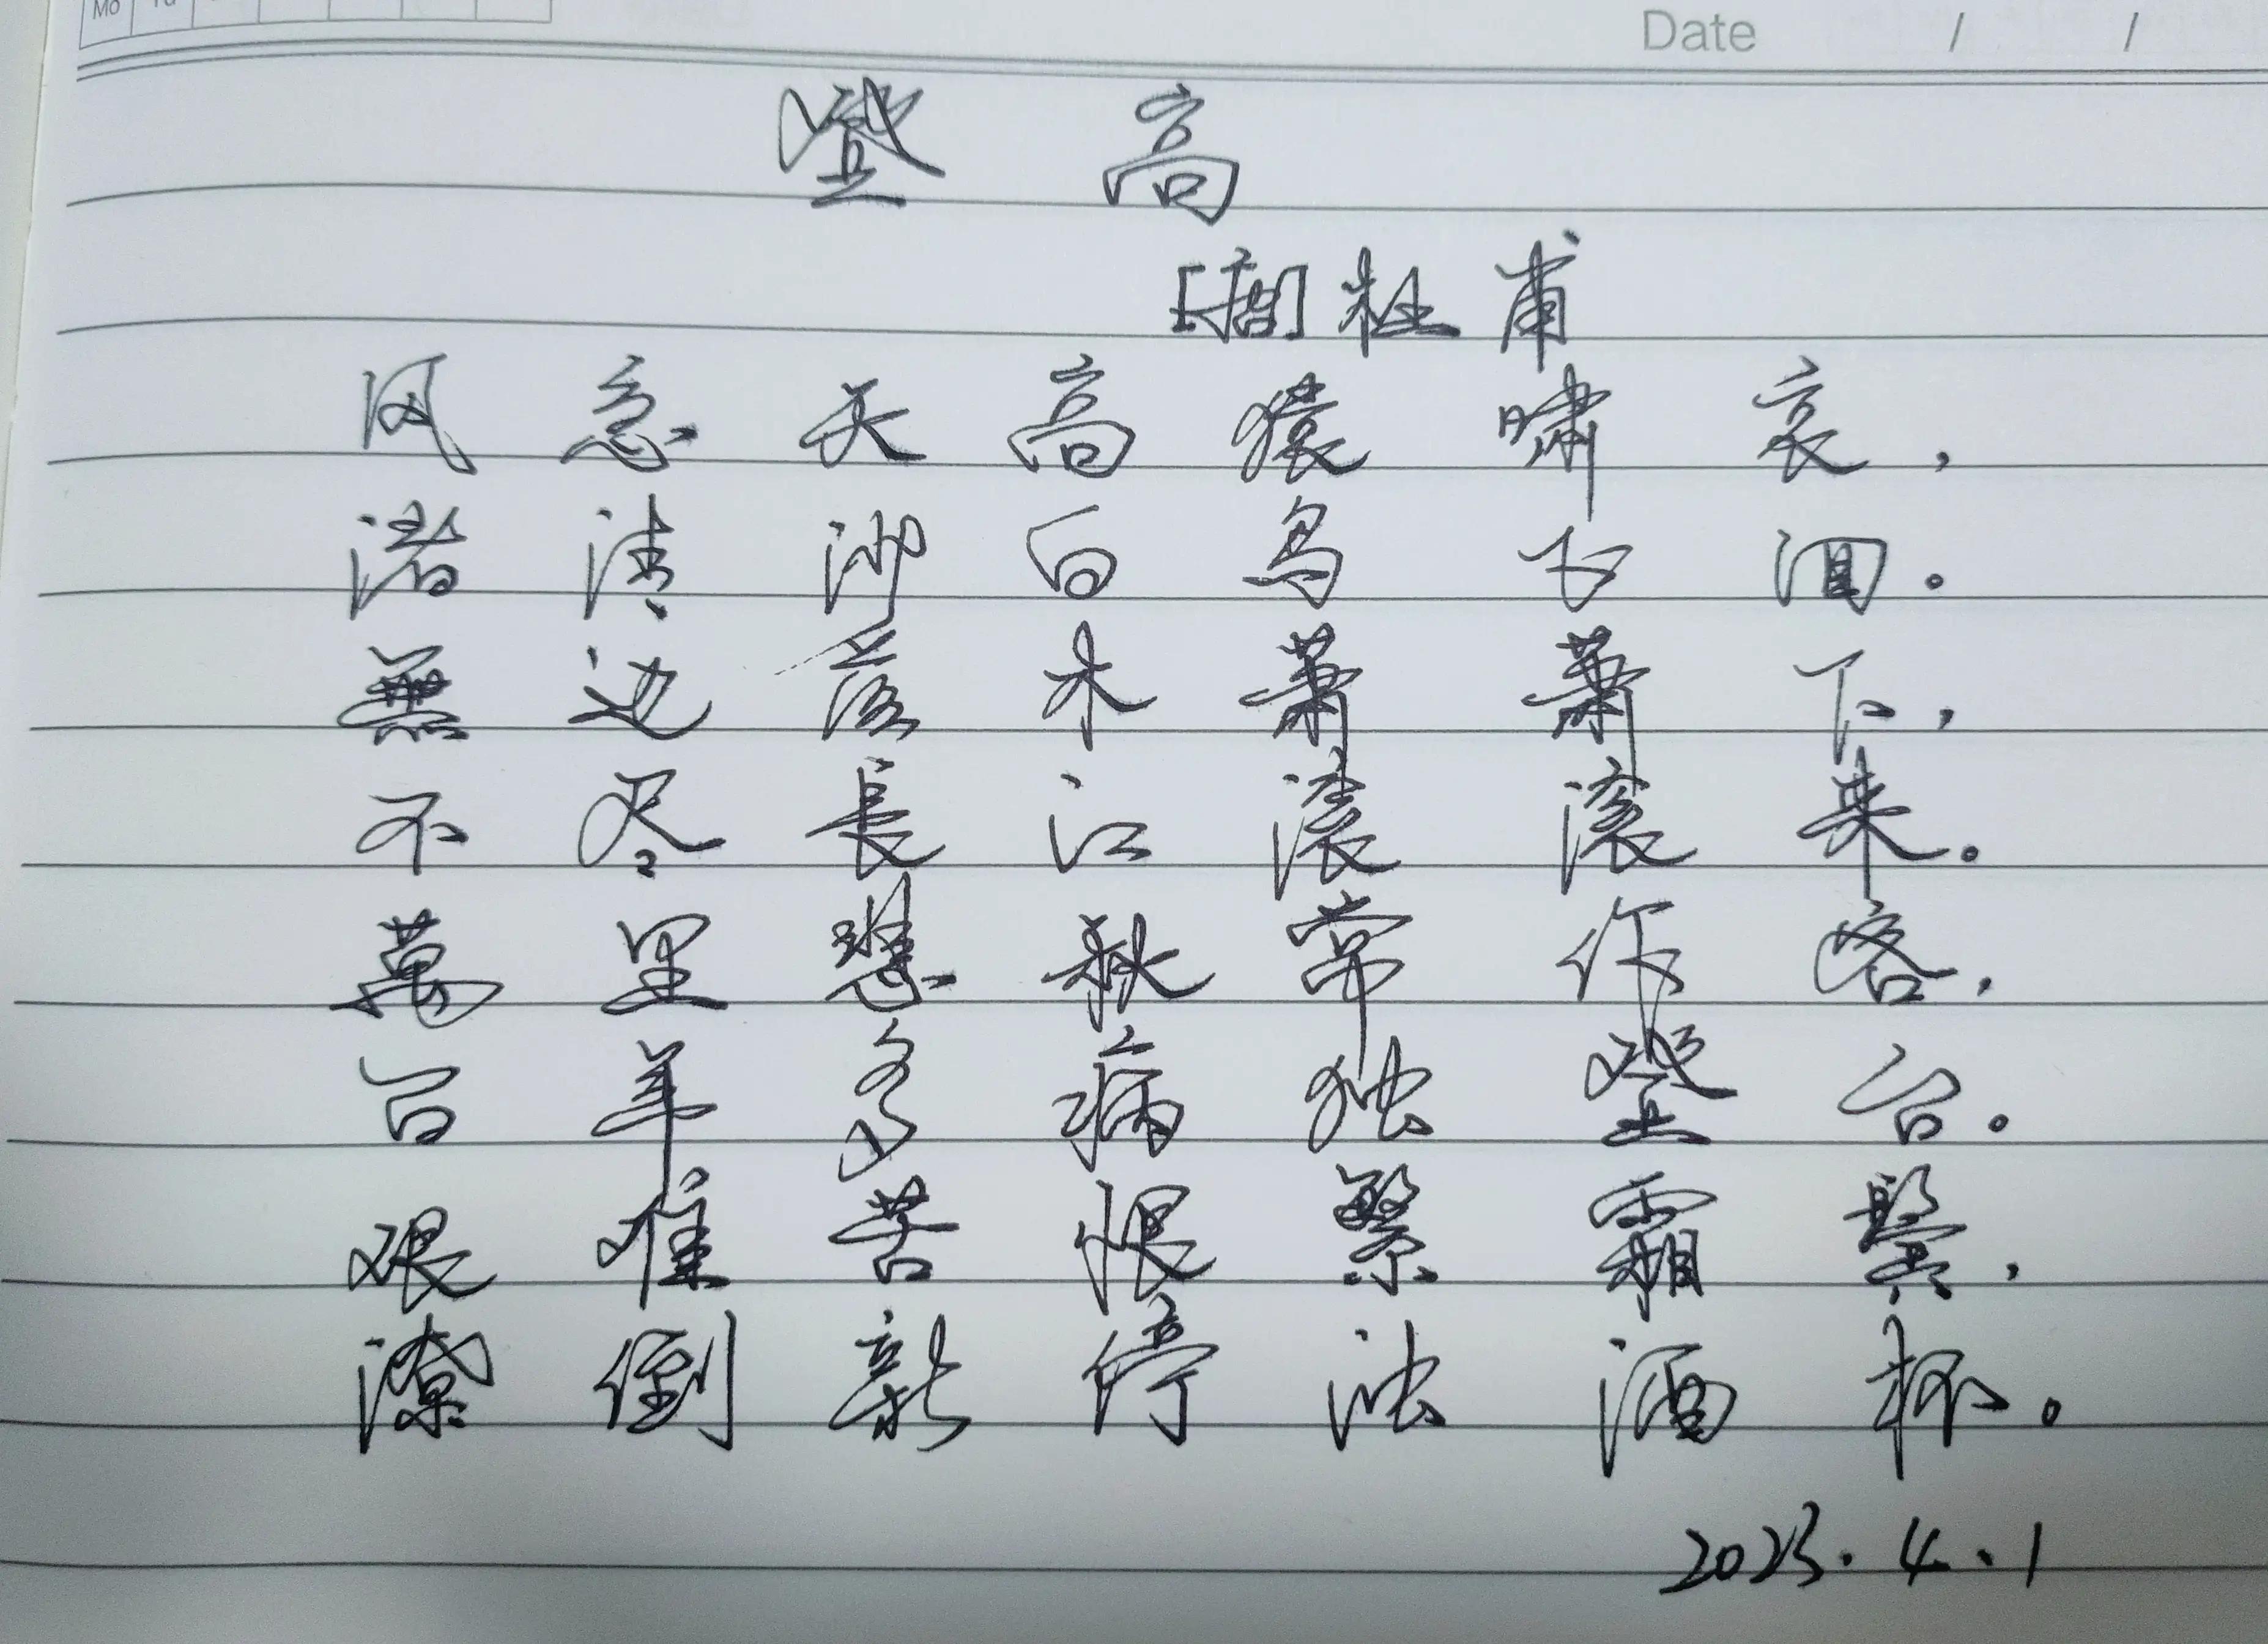 Mo Tu
Date / /
登高
[唐]杜甫
风急天高猿啸哀，
渚清沙白鸟飞洄。
無边落木萧萧下，
不尽長江滚滚来。
萬里悲秋常作客，
百年多病独登台。
艰难苦恨繁霜鬓，
潦倒新停浊酒杯。
2023.4.1